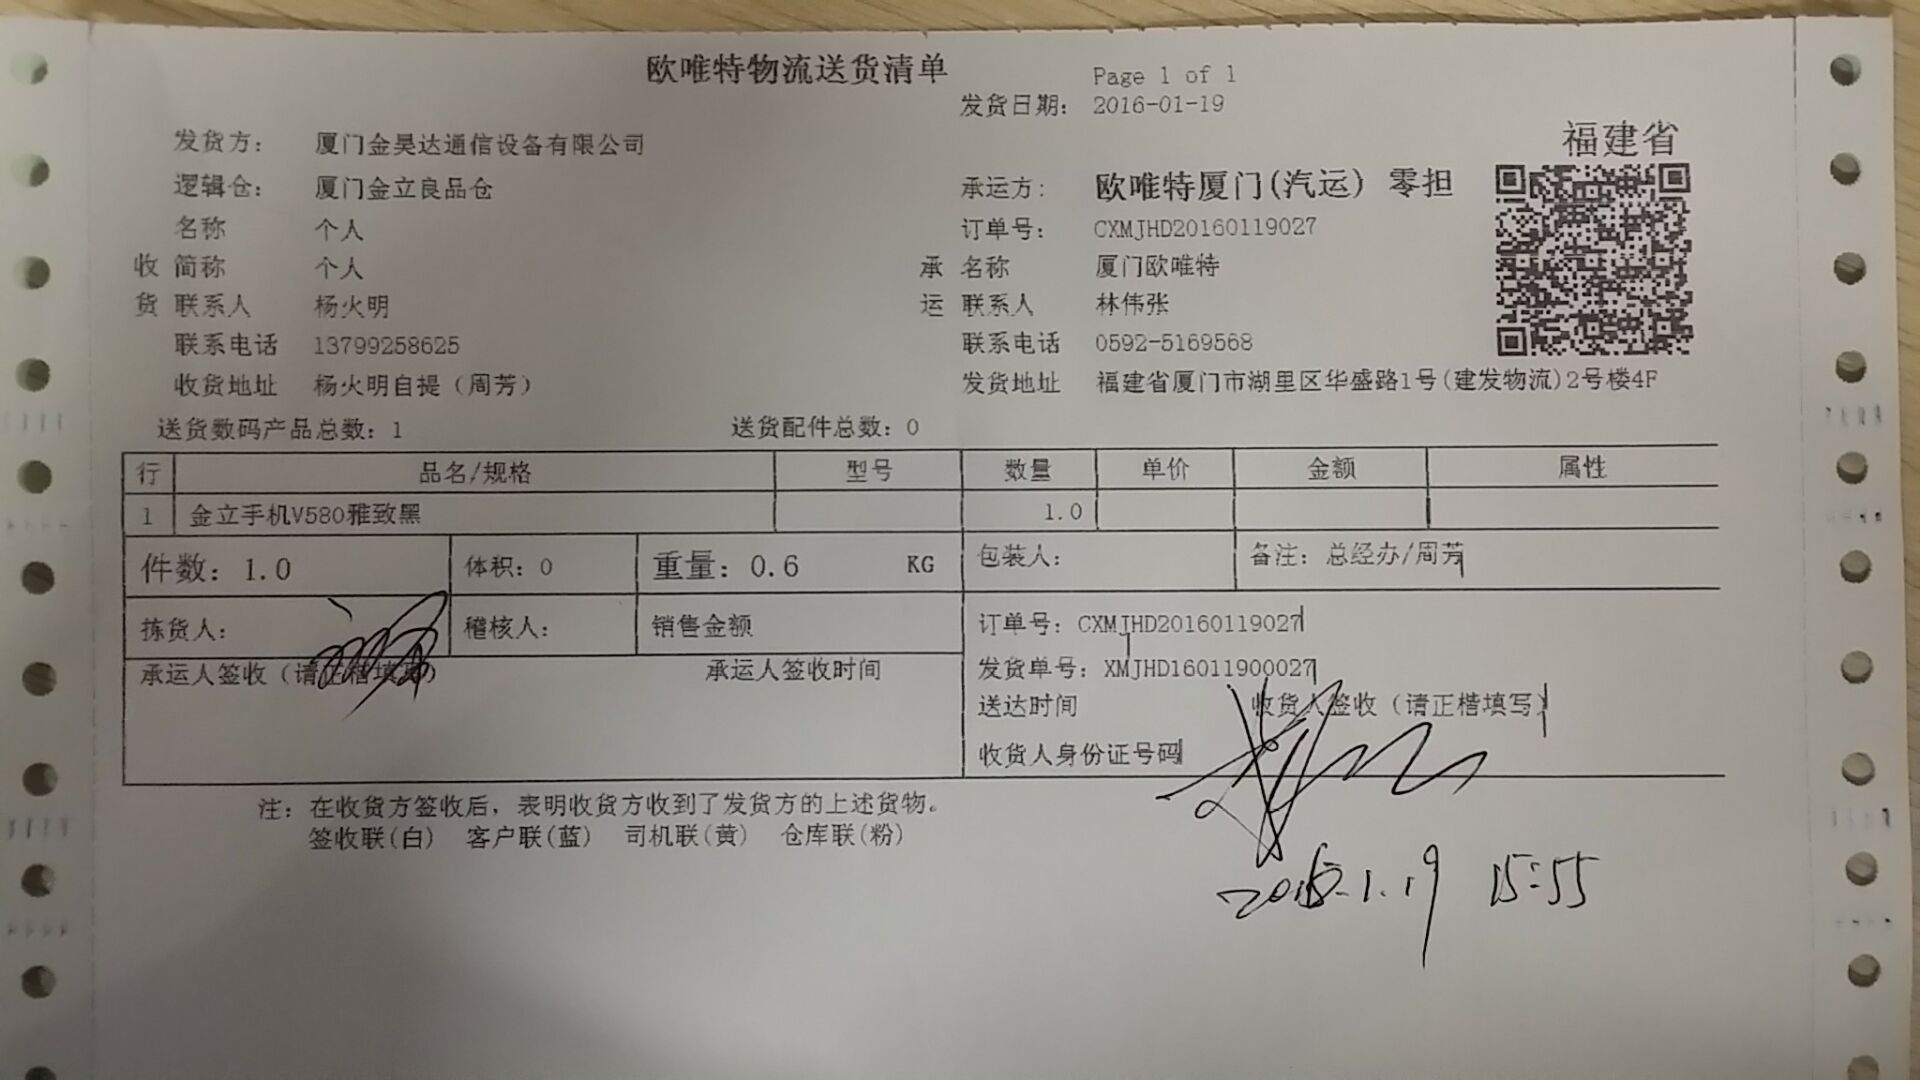 欧唯特物流送货清单
Page 1 of 1
发货日期: 2016-01-19
福建省
发货方: 厦门金昊达通信设备有限公司
逻辑仓: 厦门金立良品仓 承运方: 欧唯特厦门(汽运) 零担
名称 个人 订单号: CXMJHD20160119027
收 简称 个人 承 名称 厦门欧唯特
货 联系人 杨火明 运 联系人 林伟张
联系电话 13799258625 联系电话 0592-5169568
收货地址 杨火明自提（周芳） 发货地址 福建省厦门市湖里区华盛路1号(建发物流)2号楼4F
送货数码产品总数: 1 送货配件总数: 0
行 品名/规格 型号 数量 单价 金额 属性
1 金立手机V580雅致黑 1.0
件数: 1.0 体积: 0 重量: 0.6 KG 包装人: 备注: 总经办/周芳
拣货人: 稽核人: 销售金额 订单号: CXMJHD20160119027
承运人签收（请正楷填写） 承运人签收时间 发货单号: XMJHD16011900027
送达时间 收货人签收（请正楷填写）
收货人身份证号码
注: 在收货方签收后，表明收货方收到了发货方的上述货物。
签收联(白) 客户联(蓝) 司机联(黄) 仓库联(粉)
2016.1.19 15:55